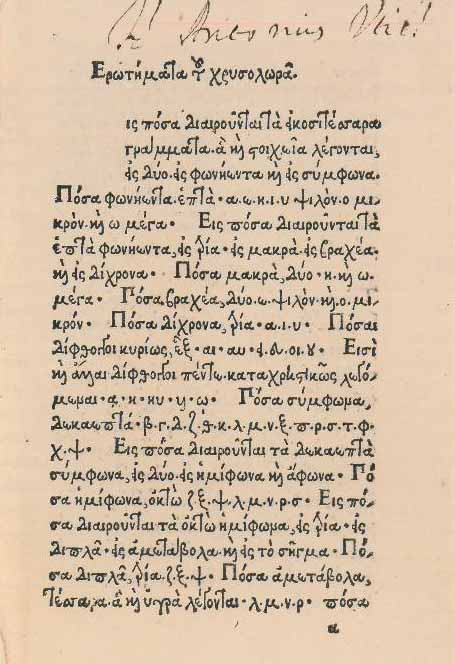 Antonius
Ερωτήματα τοῦ χρυσολωρᾶ.
ις πόσα διαιροῦνται τὰ ἐικοσιτέσσαρα
γράμματα. ἃ κὴ στοιχεῖα λέγονται,
ἐις δύο. ἐις φωνήεντα κὴ ἐις σύμφωνα.
Πόσα φωνήεντα. ἑπτὰ · α. ω. κ. ι. υ ψιλόν. ο μι
κρόν. κὴ ω μέγα · Εις πόσα διαιροῦνται τὰ
ἑπτὰ φωνήεντα, ἐις τρία · ἐις μακρὰ. ἐις βραχέα.
κὴ ἐις δίχρονα · Πόσα μακρὰ, δύο · η. κὴ ω.
μέγα · Πόσα βραχέα, δύο. ε. ψιλὸν. κὴ. ο. μι
κρόν · Πόσα δίχρονα, τρία · α. ι. υ · Πόσαι
δίφθογγοι κυρίως, ἓξ · αι · αυ · ει. ευ. οι. ου · Εισὶ
κὴ ἄλλαι δίφθογγοι πέντε. καταχρηστικῶς λεγό-
μεναι · α · η · ηυ · υι · ω · Πόσα σύμφωνα,
δεκαεπτά · β. γ. δ. ζ. θ. κ. λ. μ. ν. ξ. π. ρ. σ. τ. φ.
χ. ψ · Εις πόσα διαιροῦνται τὰ δεκαεπτὰ
σύμφωνα, ἐις δύο. ἐις ἡμίφωνα κὴ ἄφωνα · Πό
σα ἡμίφωνα, ὀκτὼ ζ. ξ. ψ. λ. μ. ν. ρ. σ · Εις πό-
σα διαιροῦνται τὰ ὀκτὼ ἡμίφωνα, ἐις τρία · ἐις
διπλᾶ · ἐις ἀμετάβολα. κὴ ἐις τὸ σῆγμα · Πό-
σα διπλᾶ, τρία. ζ. ξ. ψ · Πόσα ἀμετάβολα,
τέσσαρα. ἃ κὴ ὑγρὰ λέγονται · λ. μ. ν. ρ · πόσα
a